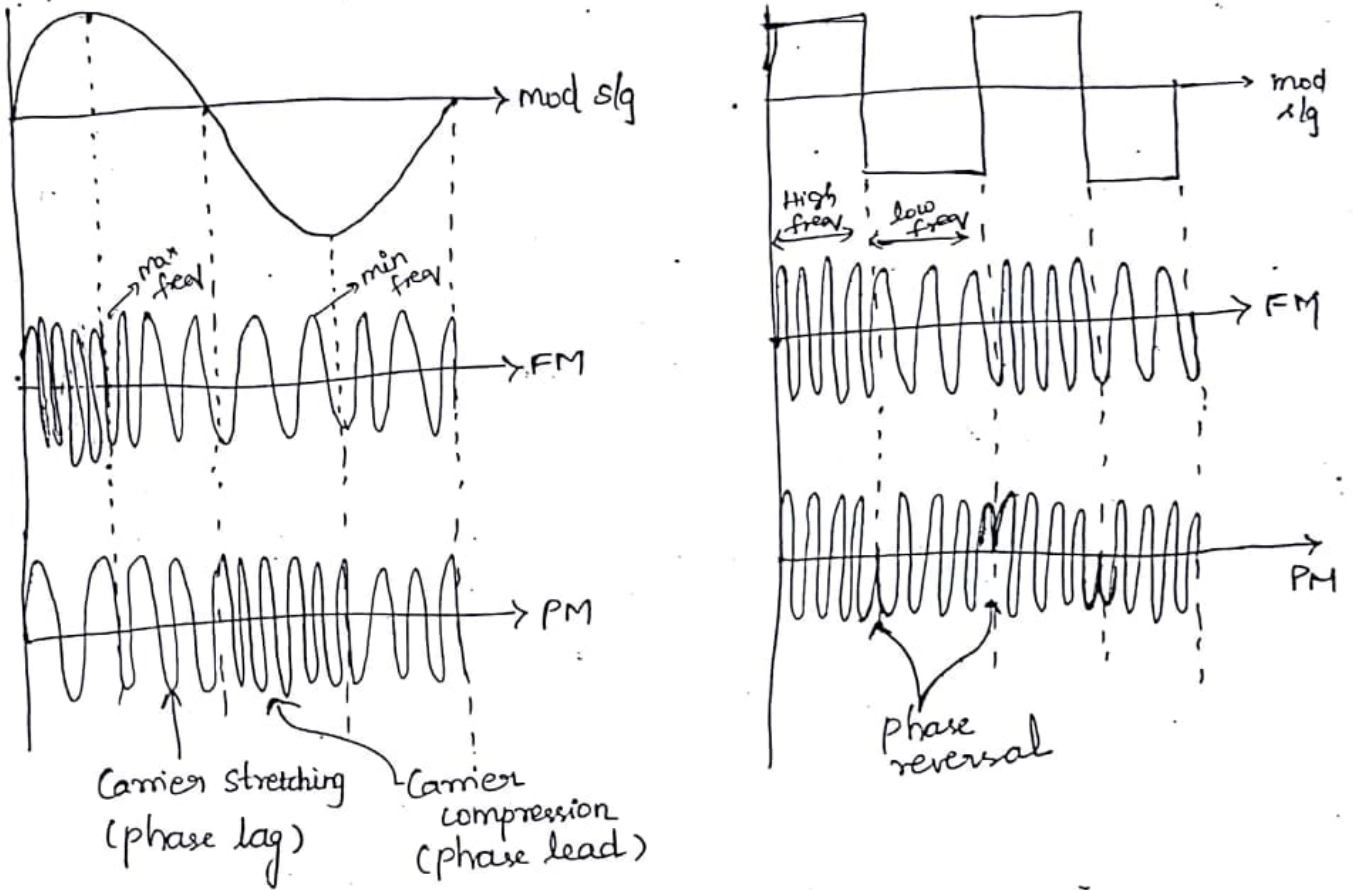 mod s/g
max
freq
min
freq
FM
PM
Carrier stretching
(phase lag)
Carrier
compression
(phase lead)
mod
s/g
High
freq
low
freq
FM
PM
phase
reversal